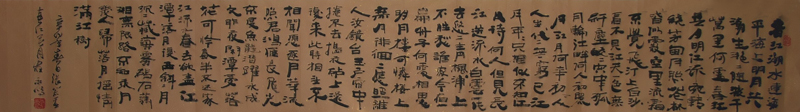 春江潮水連海
平海上明月共
潮生灩灩隨波
千萬里何處春江
無月明江流宛轉
繞芳甸月照花林
皆似霰空里流霜
不覺飛汀上白沙
看不見江天一色無
纖塵皎皎空中孤
月輪江畔何人初見
月江月何年初照人
人生代代無窮已江
月年年只相似不知
江月待何人但見長
江送流水白雲一片
去悠悠青楓浦上
不勝愁誰家今夜
扁舟子何處相思
明月樓可憐樓上
月徘徊應照離
人妝鏡台玉戶簾中
卷不去搗衣砧上拂
還來此時相望不
相聞願逐月華流
照君鴻雁長飛光
不度魚龍潛躍水成
文昨夜閒潭夢落
花可憐春半不還家
江水流春去欲盡江
潭落月復西斜斜月
沉沉藏海霧碣石瀟
湘無限路不知乘月
幾人歸落月搖情
滿江樹